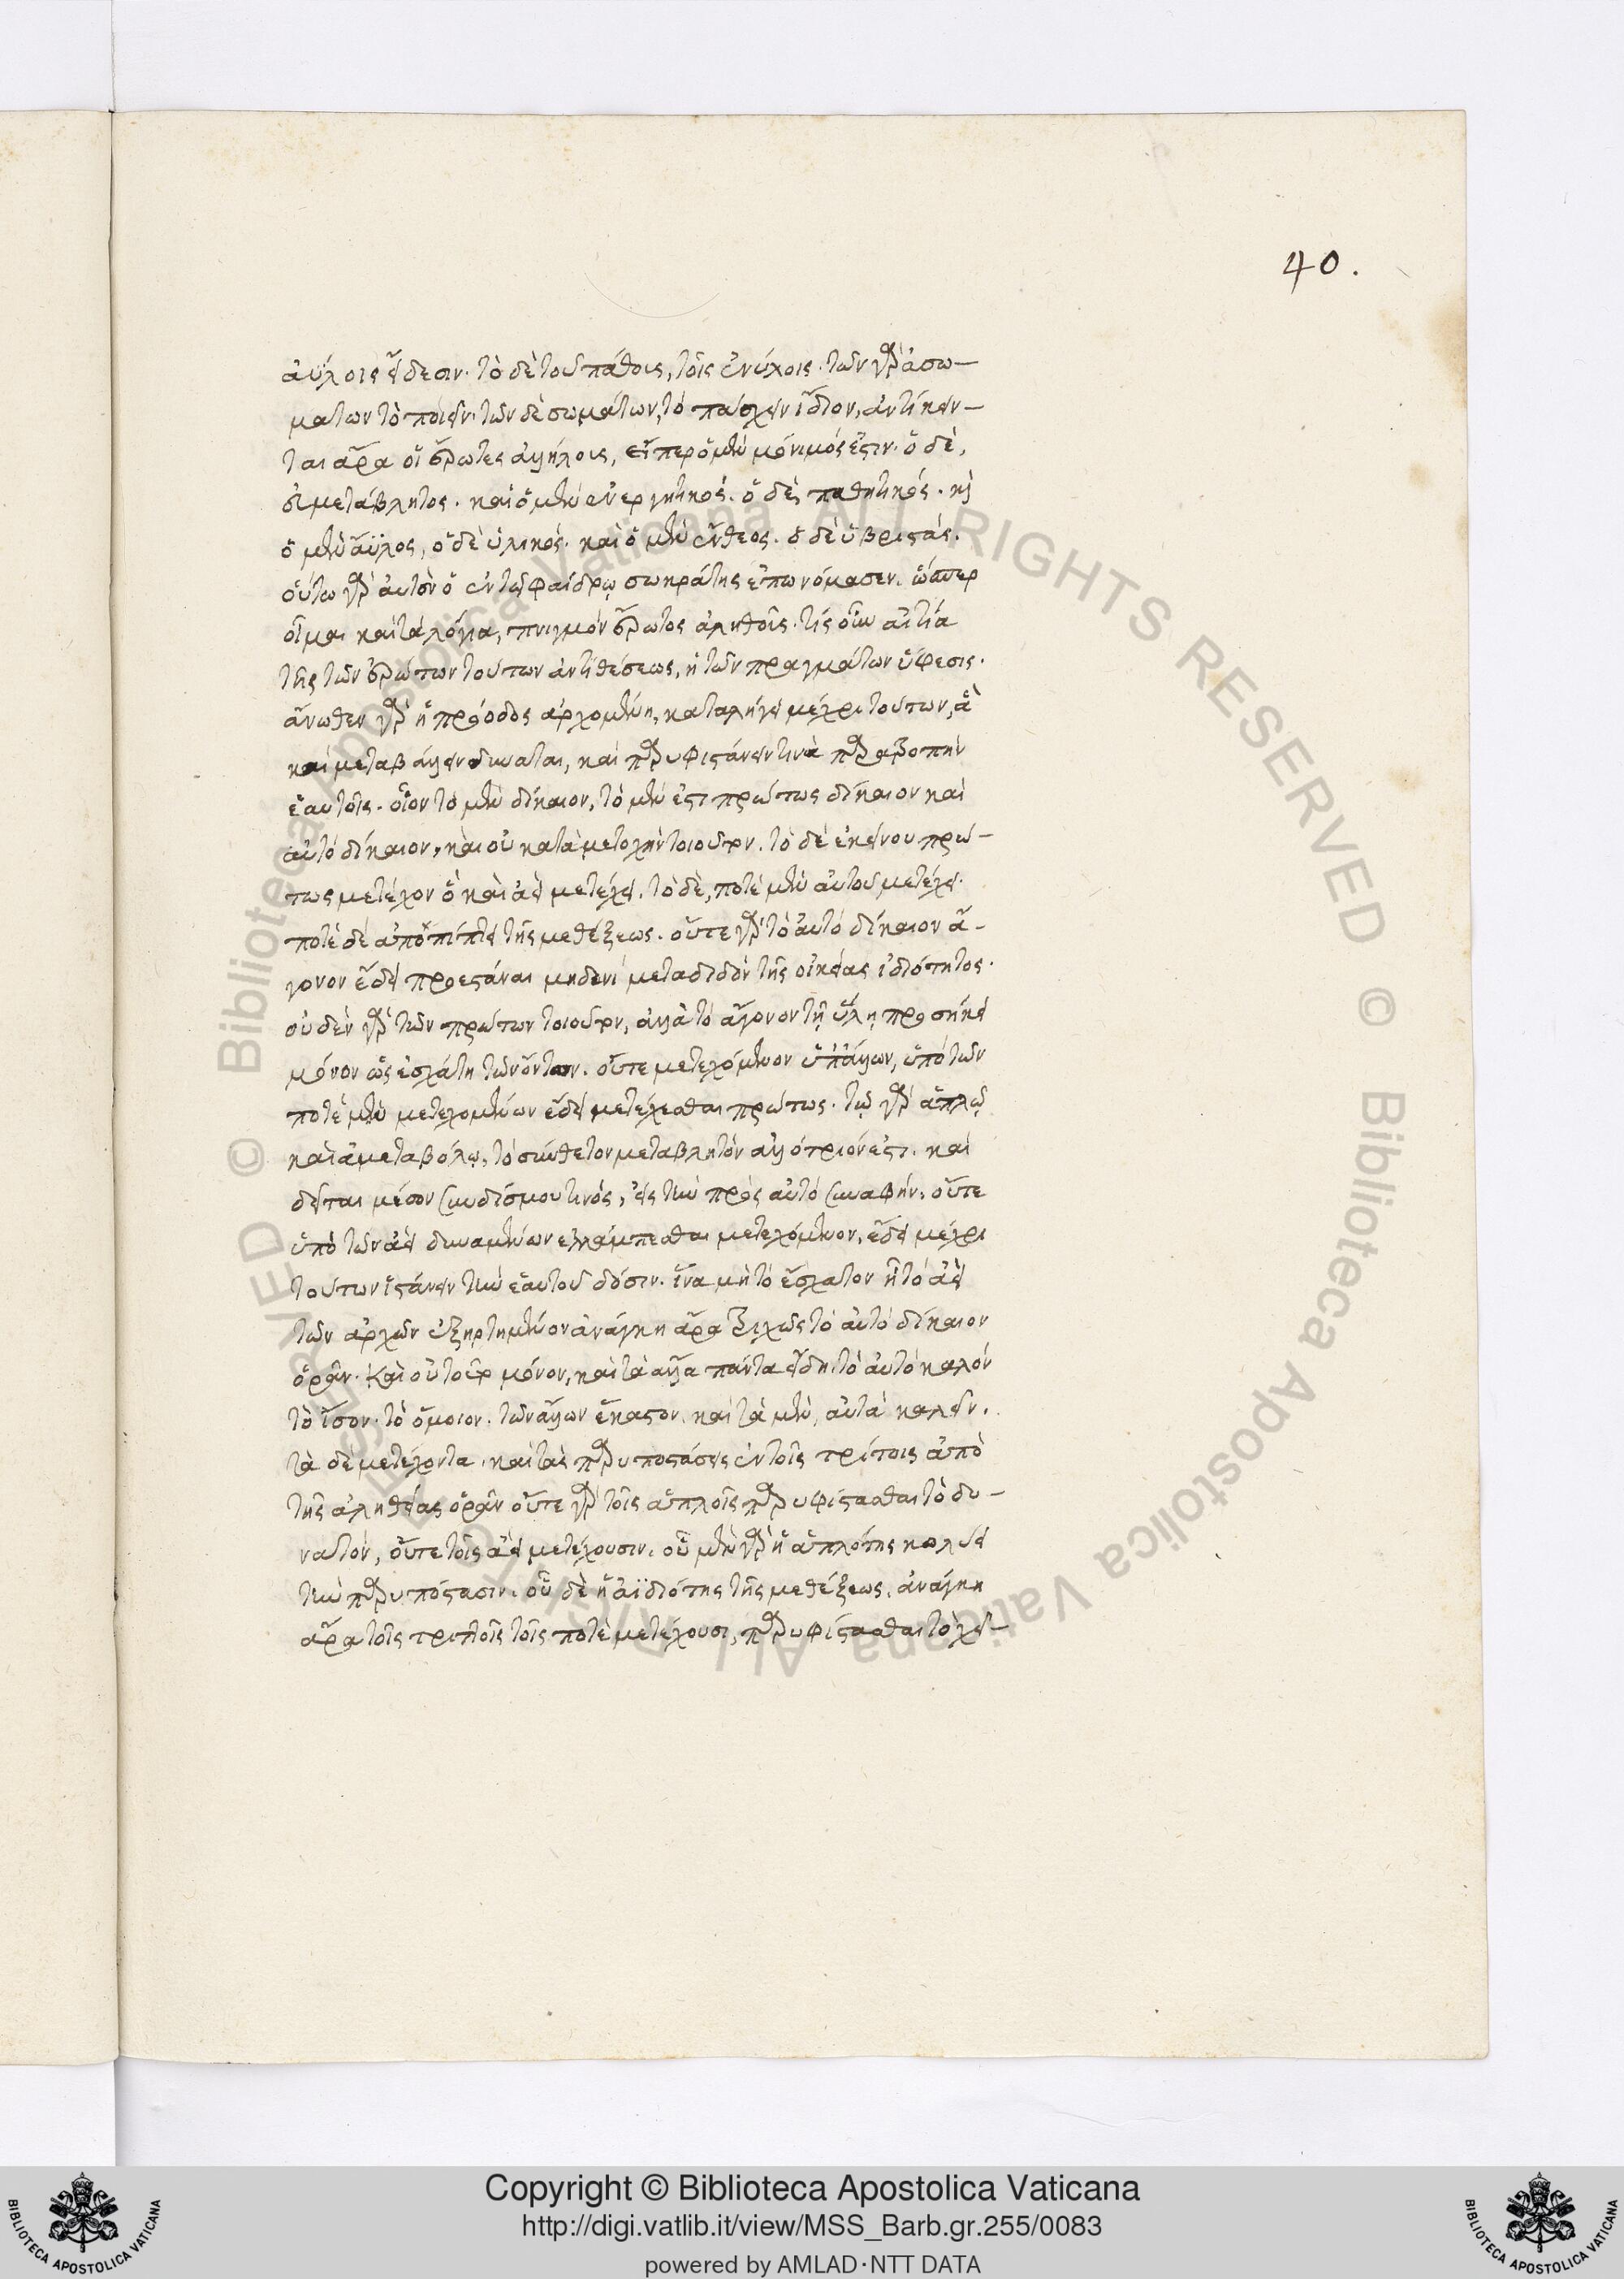 40.
ἀΰλοις εἴδεσιν· τὸ δὲ τοῦ πάθους, τοῖς ἐνύλοις· τῶν γὰρ ἀσω-
μάτων τὸ ποιεῖν· τῶν δὲ σωμάτων, τὸ πάσχειν ἴδιον, ἀντίκειν-
ται ἄρα οἱ ἔρωτες ἀλλήλοις, εἴπερ ὁ μὲν μόνιμός ἐστιν· ὁ δὲ,
εὐμετάβλητος. καὶ ὁ μὲν ἐνεργητικός. ὁ δὲ, παθητικός. κὶ
ὁ μὲν ἄϋλος, ὁ δὲ ὑλικός. καὶ ὁ μὲν ἔνθεος. ὁ δὲ ὑβριστάς.
οὕτω γὰρ αὐτὸν ὁ ἐν τῷ Φαίδρῳ σωκράτης ἐπωνόμασεν. ὥσπερ
οἶμαι καὶ τὰ λόγια, πνιγμὸν ἔρωτος ἀληθοῦς. τίς οὖν αἰτία
τῆς τῶν ἐρώτων τούτων ἀντιθέσεως, ἡ τῶν πραγμάτων ὕφεσις.
ἄνωθεν γὰρ ἡ πρόοδος ἀρχομένη, καταλήγει μέχρι τούτων, ἃ
καὶ μεταβάλλειν δύναται, καὶ παρυφιστάνειν τινὰ παρατροπὴν
ἑαυτοῖς. οἷον τὸ μὲν δίκαιον, τὸ μὲν ἐστι πρώτως δίκαιον καὶ
αὐτὸ δίκαιον, καὶ οὐ κατὰ μετοχὴν τοιοῦτον. τὸ δὲ ἐκείνου πρώ-
τως μετέχον ὃ καὶ ἀεὶ μετέχει. τὸ δὲ, ποτὲ μὲν αὐτοῦ μετέχει·
ποτὲ δὲ ἀποπίπτει τῆς μεθέξεως. οὔτε γὰρ τὸ αὐτὸ δίκαιον ἄ-
γονον ἔδει προεστάναι μηδενὶ μεταδιδὸν τῆς οἰκείας ἰδιότητος.
οὐδὲν γὰρ τῶν πρώτων τοιοῦτον, ἀλλὰ τὸ ἄγονον τῇ ὕλῃ προσήκει
μόνον ὡς ἐσχάτῃ τῶν ὄντων. οὔτε μετεχόμενον ὑπ' ἄλλων, ὑπὸ τῶν
ποτὲ μὲν μετεχομένων ἔδει μετέχεσθαι πρώτως. τῷ γὰρ ἁπλῷ
καὶ ἀμεταβόλῳ, τὸ σύνθετον μεταβλητὸν ἀλλότριόν ἐστι. καὶ
δεῖται μέσου συνδέσμου τινός, εἰς τὴν πρὸς αὐτὸ συναφήν. οὔτε
ὑπὸ τῶν ἀεὶ δυναμένων ἐλλάμπεσθαι μετεχόμενον, ἔδει μέχρι
τούτων ἱστάνειν τὴν ἑαυτοῦ δόσιν. ἵνα μὴ τὸ ἔσχατον ᾖ τὸ ἀεὶ
τῶν ἀρχῶν ἐξηρτημένον ἀνάγκη ἄρα τριχῶς τὸ αὐτὸ δίκαιον
ὁρᾶν. καὶ οὐ τοῦτο μόνον, καὶ τὰ ἄλλα πάντα εἴδη. τὸ αὐτὸ καλὸν
τὸ ἴσον. τὸ ὅμοιον. τῶν ἄλλων ἕκαστον. καὶ τὰ μὲν, αὐτὰ καλεῖν.
τὰ δὲ μετέχοντα. καὶ τὰς παρυποστάσεις ἐν τοῖς τρίτοις ἀπὸ
τῆς ἀληθείας ὁρᾶν οὔτε γὰρ τοῖς ἁπλοῖς παρυφίστασθαι τὸ δυ-
νατὸν, οὔτε τοῖς ἀεὶ μετέχουσιν. οὗ μὲν γὰρ ἡ ἁπλότης κωλύει
τὴν παρυπόστασιν. οὗ δὲ ἡ ἀϊδιότης τῆς μεθέξεως. ἀνάγκη
ἄρα τοῖς τριττοῖς τοῖς ποτὲ μετέχουσι, παρυφίστασθαι τὸ χεῖ-
Copyright © Biblioteca Apostolica Vaticana
http://digi.vatlib.it/view/MSS_Barb.gr.255/0083
powered by AMLAD·NTT DATA
BIBLIOTECA APOSTOLICA VATICANA
BIBLIOTECA APOSTOLICA VATICANA
© Biblioteca Apostolica Vaticana ALL RIGHTS RESERVED © Biblioteca Apostolica Vaticana ALL RIGHTS RESERVED